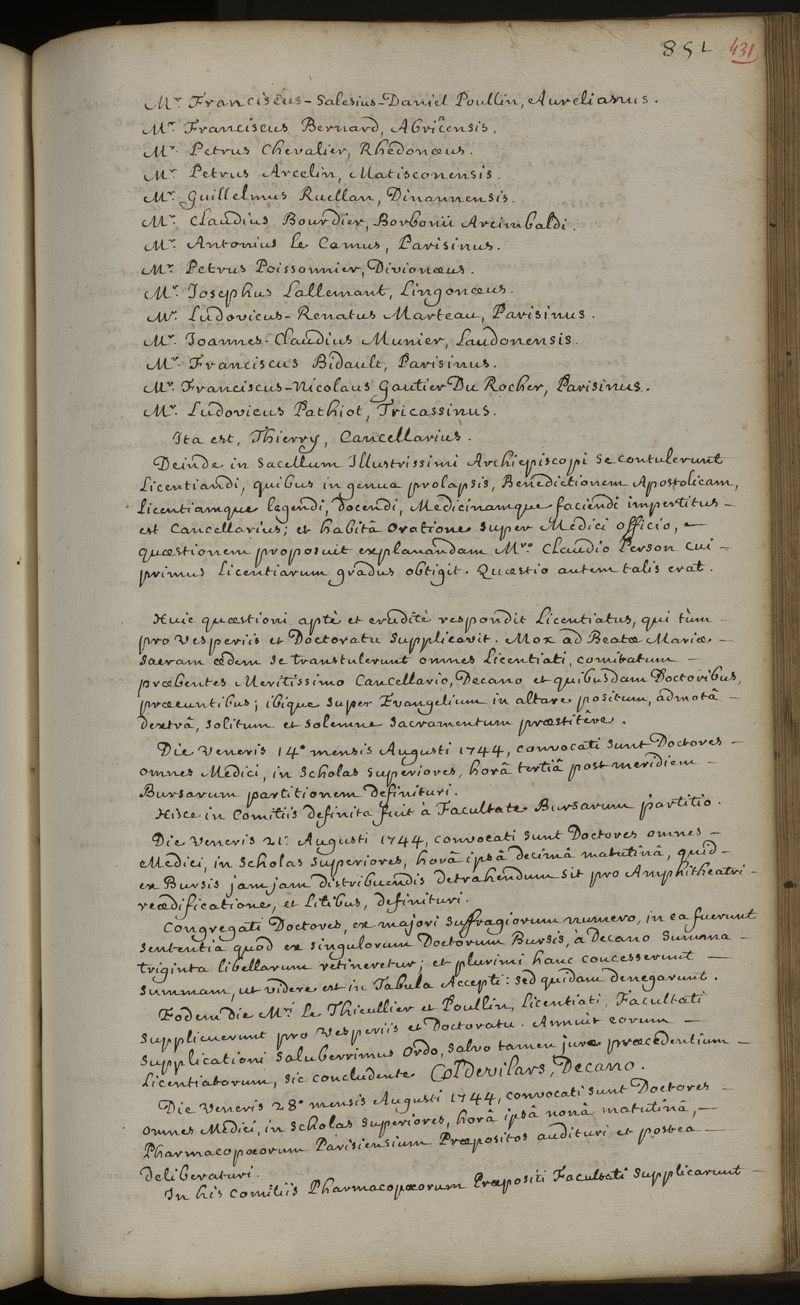 851 431
Mr. Franciscus-Salesius-Daniel Poullin, Aurelianus.
Mr. Franciscus Bernard, Abricensis.
Mr. Petrus Chevalier, Rhedonæus.
Mr. Petrus Arcelin, Matisconensis.
Mr. Guillelmus Ruellan, Dinannensis.
Mr. Claudius Bourdier, Borbonii Arcimbaldi.
Mr. Antonius Le Camus, Parisinus.
Mr. Petrus Poissonnier, Divionæus.
Mr. Josephus Lallemant, Lingonæus.
Mr. Ludovicus-Renatus Marteau, Parisinus.
Mr. Joannes-Claudius Munier, Laudonensis.
Mr. Franciscus Bidault, Parisinus.
Mr. Franciscus-Nicolaus Gautier Du Rocher, Parisinus.
Mr. Ludovicus Pathiot, Tricassinus.
Ita est, Thierry, Cancellarius.
Deinde in Sacellum Illustrissimi Archiepiscopi se contulerunt
Licentiandi, quibus in genua prolapsis, Benedictionem Apostolicam,
Licentiamque legendi, docendi, Medicinamque faciendi impertitus –
est Cancellarius; et habitâ Oratione super Medici officio, –
quæstionem proposuit explanandam Mro. Claudio Person cui –
primus Licentiarum gradus obtigit. Quæstio autem talis erat.
Huic quæstioni aptè et eruditè respondit Licentiatus, qui tùm
pro Vesperiis et Doctoratu supplicavit. Mox ad Beatæ Mariæ –
sacram ædem se transtulerunt omnes Licentiati, comitatum –
præbentes Meritissimo Cancellario, Decano et quibusdam Doctoribus,
præeuntibus; ibique super Evangelium in altare positum, admotâ –
dextrâ, solitum et solemne Sacramentum præstitêre.
Die Veneris 14ª mensis Augusti 1744, convocati sunt Doctores –
omnes Medici, in Scholas superiores, horâ tertiâ post meridiem –
Bursarum partitionem definituri.
Hisce in Comitiis definita fuit à Facultate Bursarum partitio.
Die Veneris 21ª Augusti 1744, convocati sunt Doctores omnes –
Medici, in Scholas superiores, horâ ipsâ decimâ matutinâ, quid –
ex Bursis jamjam distribuendis detrahendum sit pro Amphitheatri –
reædificatione, et Litibus, definituri.
Congregati Doctores, ex majori suffragiorum numero, in ea fuerunt
sententia quod ex singulorum Doctorum Bursis, à Decano Summa –
triginta libellarum retineretur; et plurimi hanc concesserunt –
summam, ut videre est in Tabula Accepti: sed quidam denegarunt.
Eodem die Mri. Le Thieullier et Poullin, Licentiati, Facultati
supplicuerunt pro Vesperiis et Doctoratu. Annuit eorum –
supplicationi Saluberrimus Ordo, salvo tamen jure præcedentium –
Licentiatorum, sic concludente Coldevilars, Decano.
Die Veneris 28ª mensis Augusti 1744, convocati sunt Doctores –
omnes Medici, in Scholas superiores, horâ ipsâ nonâ matutinâ, –
Pharmacopæorum Parisiensium Præpositos audituri et postea –
deliberaturi.
In his comitiis Pharmacopæorum Præpositi Facultati supplicarunt –